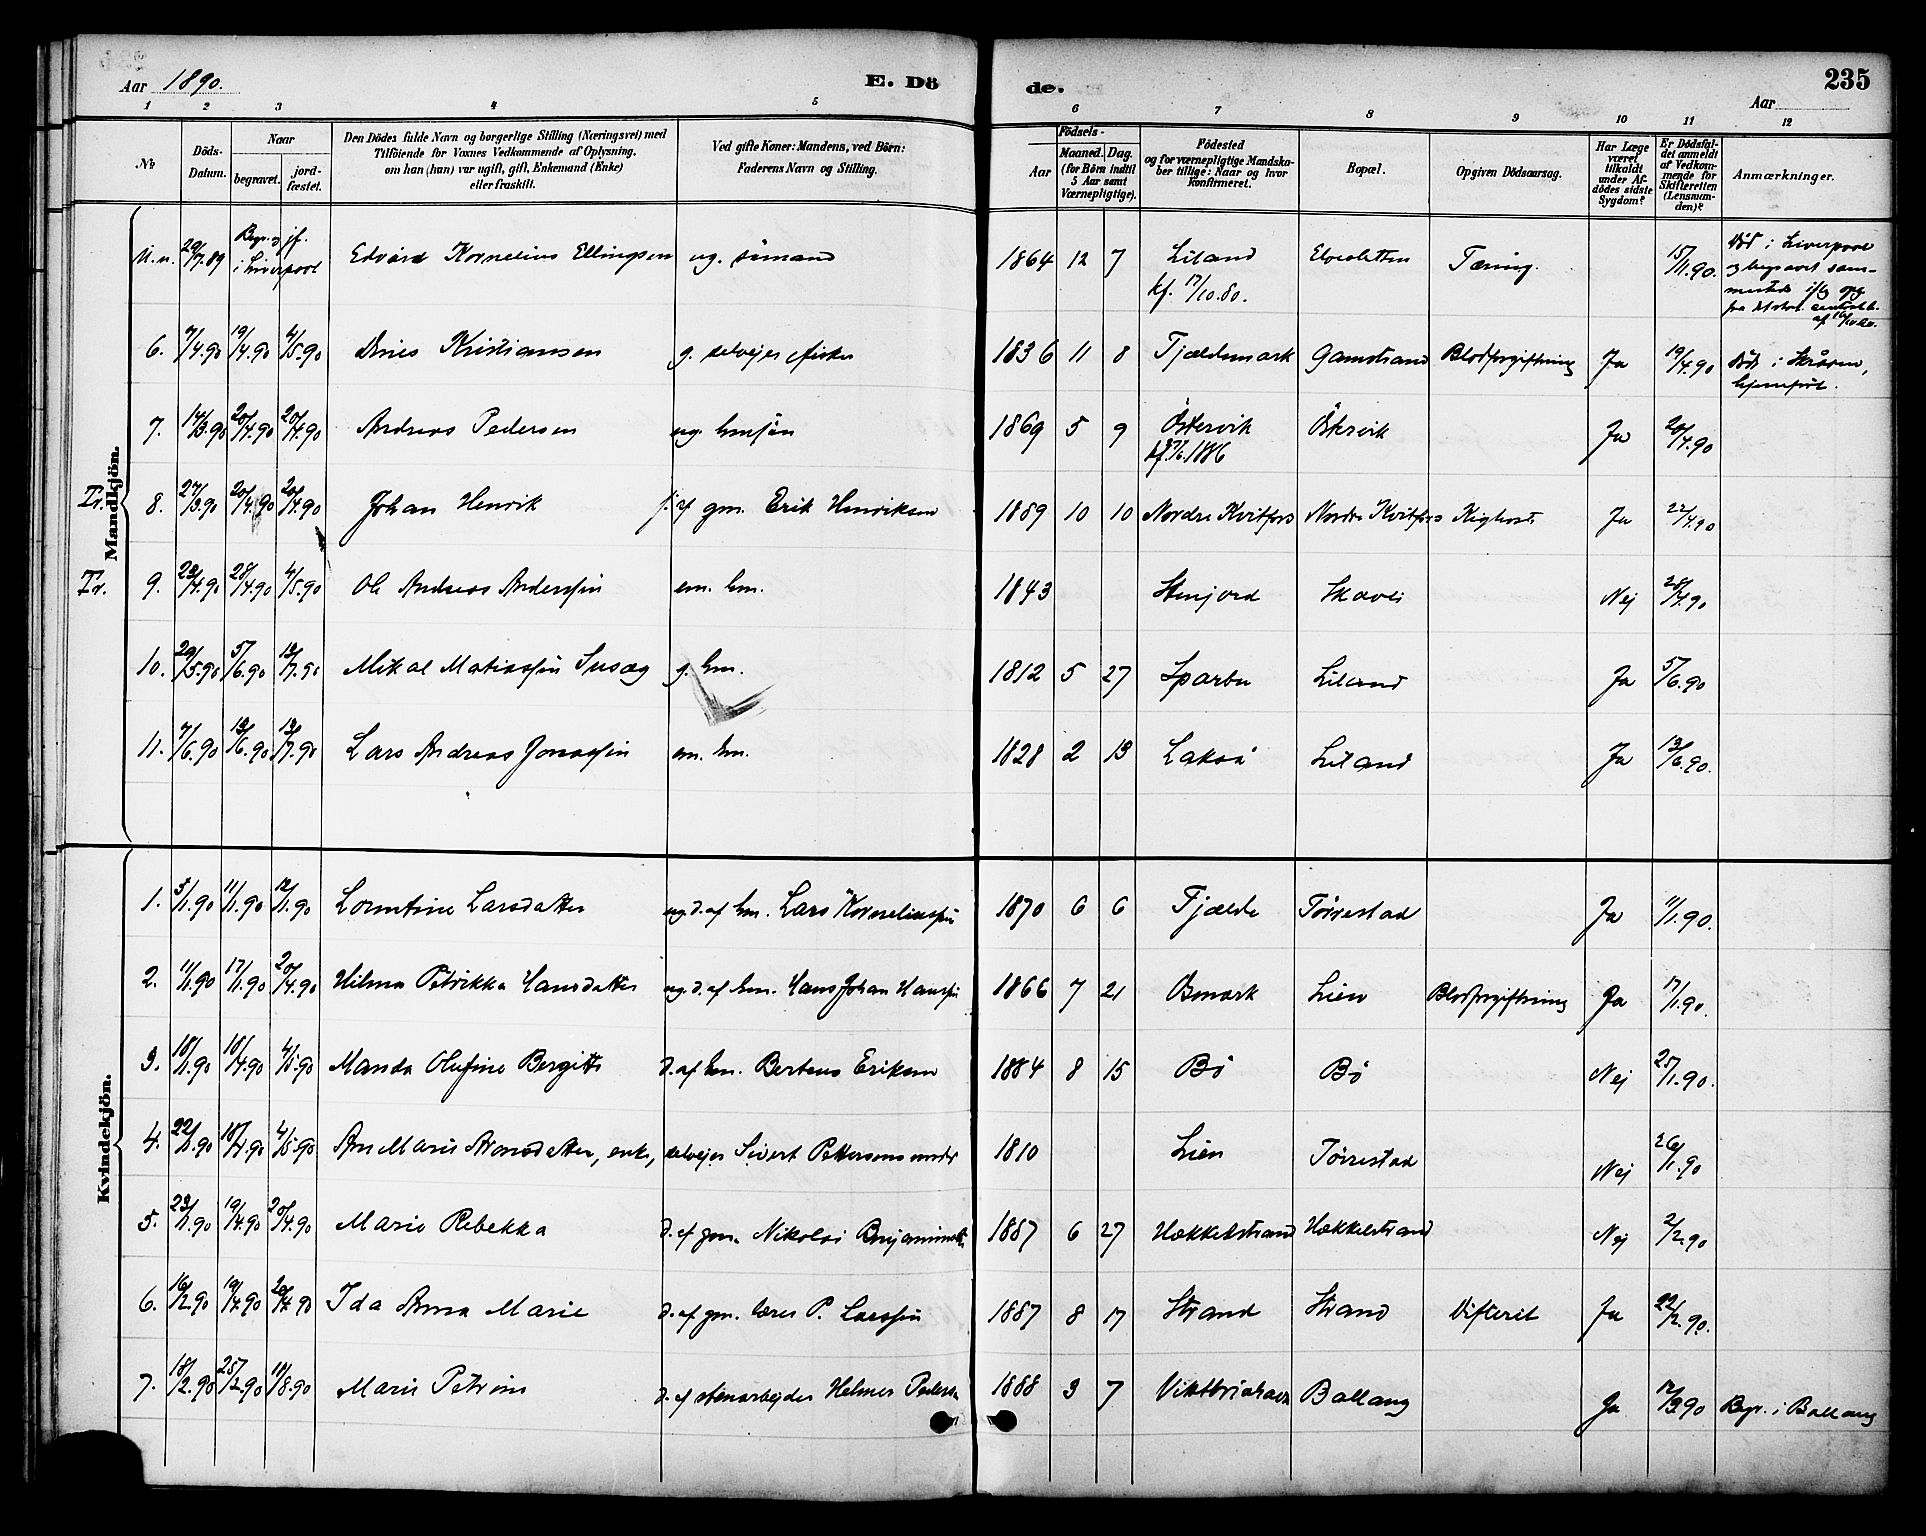 Aar 1890.
E. Dö
de.
235
Aar
1 2 3 4 5 6 7 8 9 10 11 12
No
Döds-Datum.
Naar
begravet.
jord-fæstet.
Den Dödes fulde Navn og borgerlige Stilling (Næringsvei) med
Tilföiende for Voxnes Vedkommende af Oplysning,
om han (hun) var ugift, gift, Enkemand (Enke)
eller fraskilt.
Ved gifte Koner: Mandens, ved Börn:
Faderens Navn og Stilling.
Födsels-
Aar
Maaned. Dag.
(for Börn indtil
5 Aar samt
Værnepligtige).
Födested
og for værnepligtige Mandska-
ber tillige: Naar og hvor
konfirmeret.
Bopæl.
Opgiven Dödsaarsag.
Har Læge
været
tilkaldt
under Af-
dödes sidste
Sygdom?
Er Dödsfal-
det anmeldt
af Vedkom-
mende for
Skifteretten
(Lensman-
den)?
Anmærkninger.
Mandkjön.
U.n. 29/7.89 Begr. og jf. i Liverpool Edvard Kornelius Ellingsen ug. sömand 1864 12 7 Liland Elvesletten Tæring. 15/11.90. Död i Liverpool
kf. 17/10.80.
6. 7/4.90 19/4.90 4/5.90 Dines Kristiansen g. selvejer fisker 1836 11 8 Fjældemark Gamstrand Blodforgiftning Ja 19/4.90 Död i Skråven,
hjemført.
7. 14/3.90 20/4.90 20/4.90 Andreas Pedersen ug. hmsön 1869 5 9 Östervik Östervik Ja 20/4.90
kf. 1886
Tv. 8. 27/3.90 20/4.90 20/4.90 Johan Henrik s. af gm. Erik Henriksen 1889 10 10 Nordre Kvitfors Nordre Kvitfors Kighoste Ja 22/4.90
Tv. 9. 23/4.90 28/4.90 4/5.90 Ole Andreas Anderssön em. hm. 1843 Stenjord Skavli Nej 28/4.90
10. 29/5.90 5/6.90 13/7.90 Mikal Matiassen Susæg g. hm. 1812 5 27 Sparbu Liland Ja 5/6.90
11. 7/6.90 13/6.90 13/7.90 Lars Andreas Jonassen em. hm. 1828 2 13 Lakså Liland Ja 13/6.90.
Kvindekjön.
1. 5/1.90 11/1.90 12/1.90 Lorentine Larsdatter ug. d. af hm. Lars Korneliussen 1870 6 6 Fjælde Tørrestad Ja 11/1.90.
2. 11/1.90 17/1.90 20/4.90 Hilma Petrikka Hansdatter ug. d. af hm. Hans Johan Hanssen 1866 7 21 Osmark Lien Blodforgiftning Ja 17/1.90.
3. 18/1.90 18/4.90 4/5.90 Manda Olufine Bergitte d. af hm. Berteus Eriksen 1884 8 15 Bö Bö Nej 25/1.90.
4. 22/1.90 18/4.90 4/5.90 Ane Marie Aronsdatter, enke, selvejer Sivert Pettersens moder 1810 Lien Tørrestad Nej 26/1.90
5. 23/1.90 19/4.90 20/4.90 Marie Rebekka d. af gm. Nikolai Benjaminsen 1887 6 27 Hækkelstrand Hækkelstrand Nej 2/2.90
6. 16/2.90 19/4.90 20/4.90 Ida Anna Marie d. af gm. lærer P. Larssen 1887 8 17 Strand Strand Difterit Ja 22/2.90.
7. 18/2.90 25/2.90 10/8.90 Marie Petrine d. af stenarbejder Helmer Peders. 1888 3 7 Viktoriahavn Ballang Ja 12/3.90 Begr. i Ballang